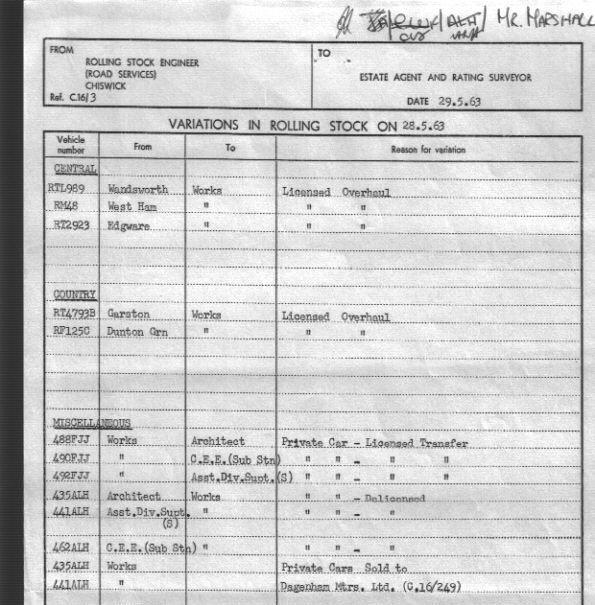 MR. MARSHALL
FROM
ROLLING STOCK ENGINEER
(ROAD SERVICES)
CHISWICK
Ref. C.16/3
TO
ESTATE AGENT AND RATING SURVEYOR
DATE 29.5.63
VARIATIONS IN ROLLING STOCK ON 28.5.63
Vehicle number From To Reason for variation
CENTRAL
RTL989 Wandsworth Works Licensed Overhaul
RM48 West Ham " " "
RT2923 Edgware " " "
COUNTRY
RT4793B Garston Works Licensed Overhaul
RF125C Dunton Grn " " "
MISCELLANEOUS
488FJJ Works Architect Private Car - Licensed Transfer
490FJJ " C.E.E.(Sub Stn) " " - " "
492FJJ " Asst.Div.Supt.(S) " " - " "
435ALH Architect Works " " - Delicensed
441ALH Asst.Div.Supt. " " " - "
(S)
462ALH C.E.E.(Sub Stn) " " " - "
435ALH Works Private Cars Sold to
441ALH " Dagenham Mtrs. Ltd. (C.16/249)